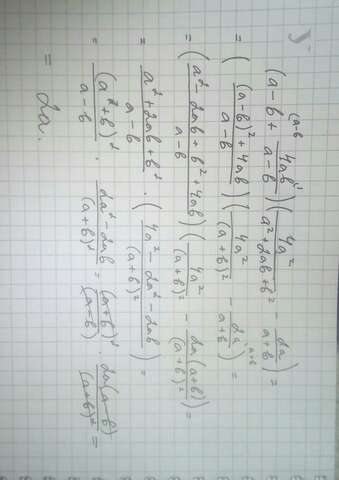 (a-b + 4ab/(a-b))(4a²/(a²+2ab+b²) - 2a/(a+b)) =
= (((a-b)²+4ab)/(a-b))(4a²/(a+b)² - 2a/(a+b)) =
= ((a²-2ab+b²+4ab)/(a-b))(4a/(a+b)² - 2a(a+b)/(a+b)²) =
= (a²+2ab+b²)/(a-b) · ((4a²-2a²-2ab)/(a+b)²) =
= (a+b)²/(a-b) · (2a²-2ab)/(a+b)² = (a+b)²/(a-b) · 2a(a-b)/(a+b)² =
= 2a.